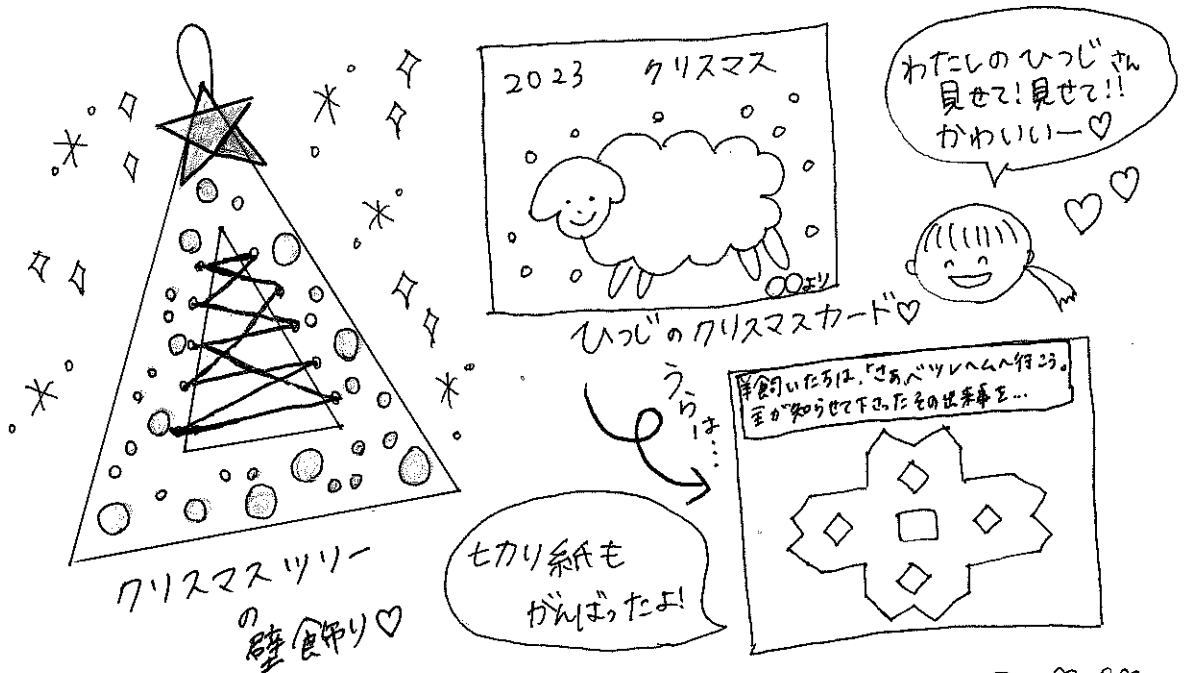 2023 クリスマス
○○より
わたしのひつじさん
見せて!見せて!!
かわいいー♡
ひつじのクリスマスカード♡
うらは…
羊飼いたちは、「さあ、ベツレヘムへ行こう。
主が知らせて下さったその出来事を…
セカリ紙も
がんばったよ!
クリスマスツリー
の
壁飾り♡